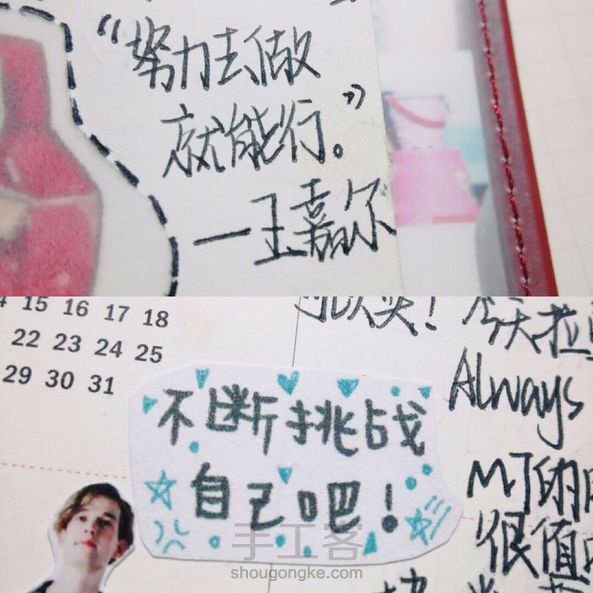 “努力去做
就能行。”
一王嘉尔
15 16 17 18
22 23 24 25
29 30 31
不断挑战
自己吧！
Always
MJ的
很值
手工客
shougongke.com